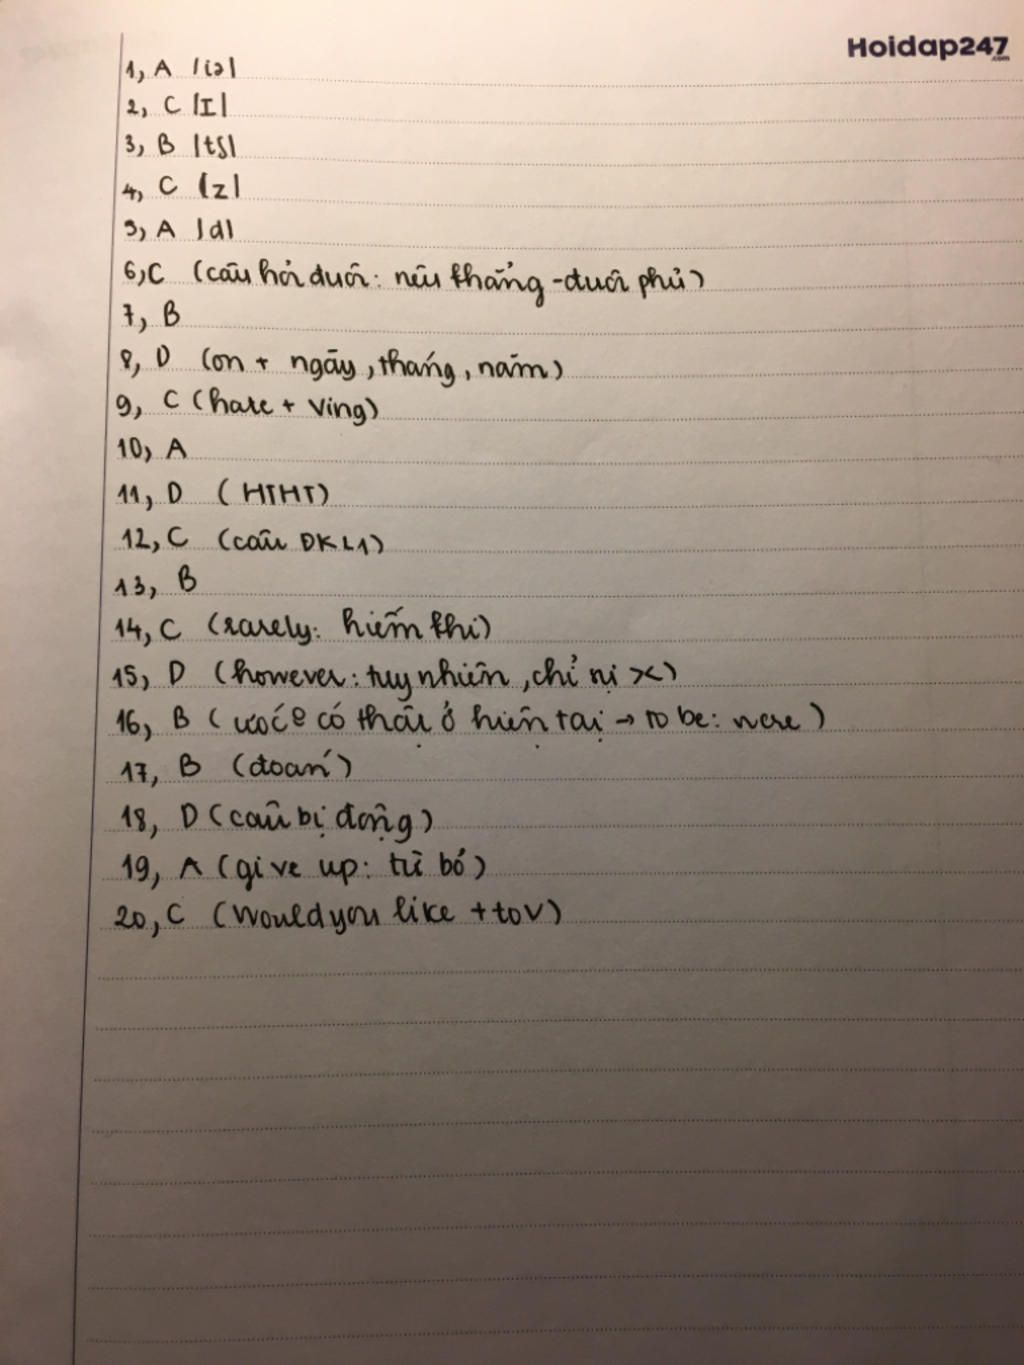 Hoidap247
.com
1, A |iə|
2, C |I|
3, B |tʃ|
4, C |z|
5, A |d|
6, C (câu hỏi đuôi: nếu khẳng - đuôi phủ)
7, B
8, D (on + ngày, tháng, năm)
9, C (hate + Ving)
10, A
11, D (HTHT)
12, C (câu ĐKL1)
13, B
14, C (rarely: hiếm khi)
15, D (however: tuy nhiên, chỉ
16, B (ước có thật ở hiện tại → to be: were)
17, B (đoán)
18, D (câu bị động)
19, A (give up: từ bỏ)
20, C (Would you like + toV)